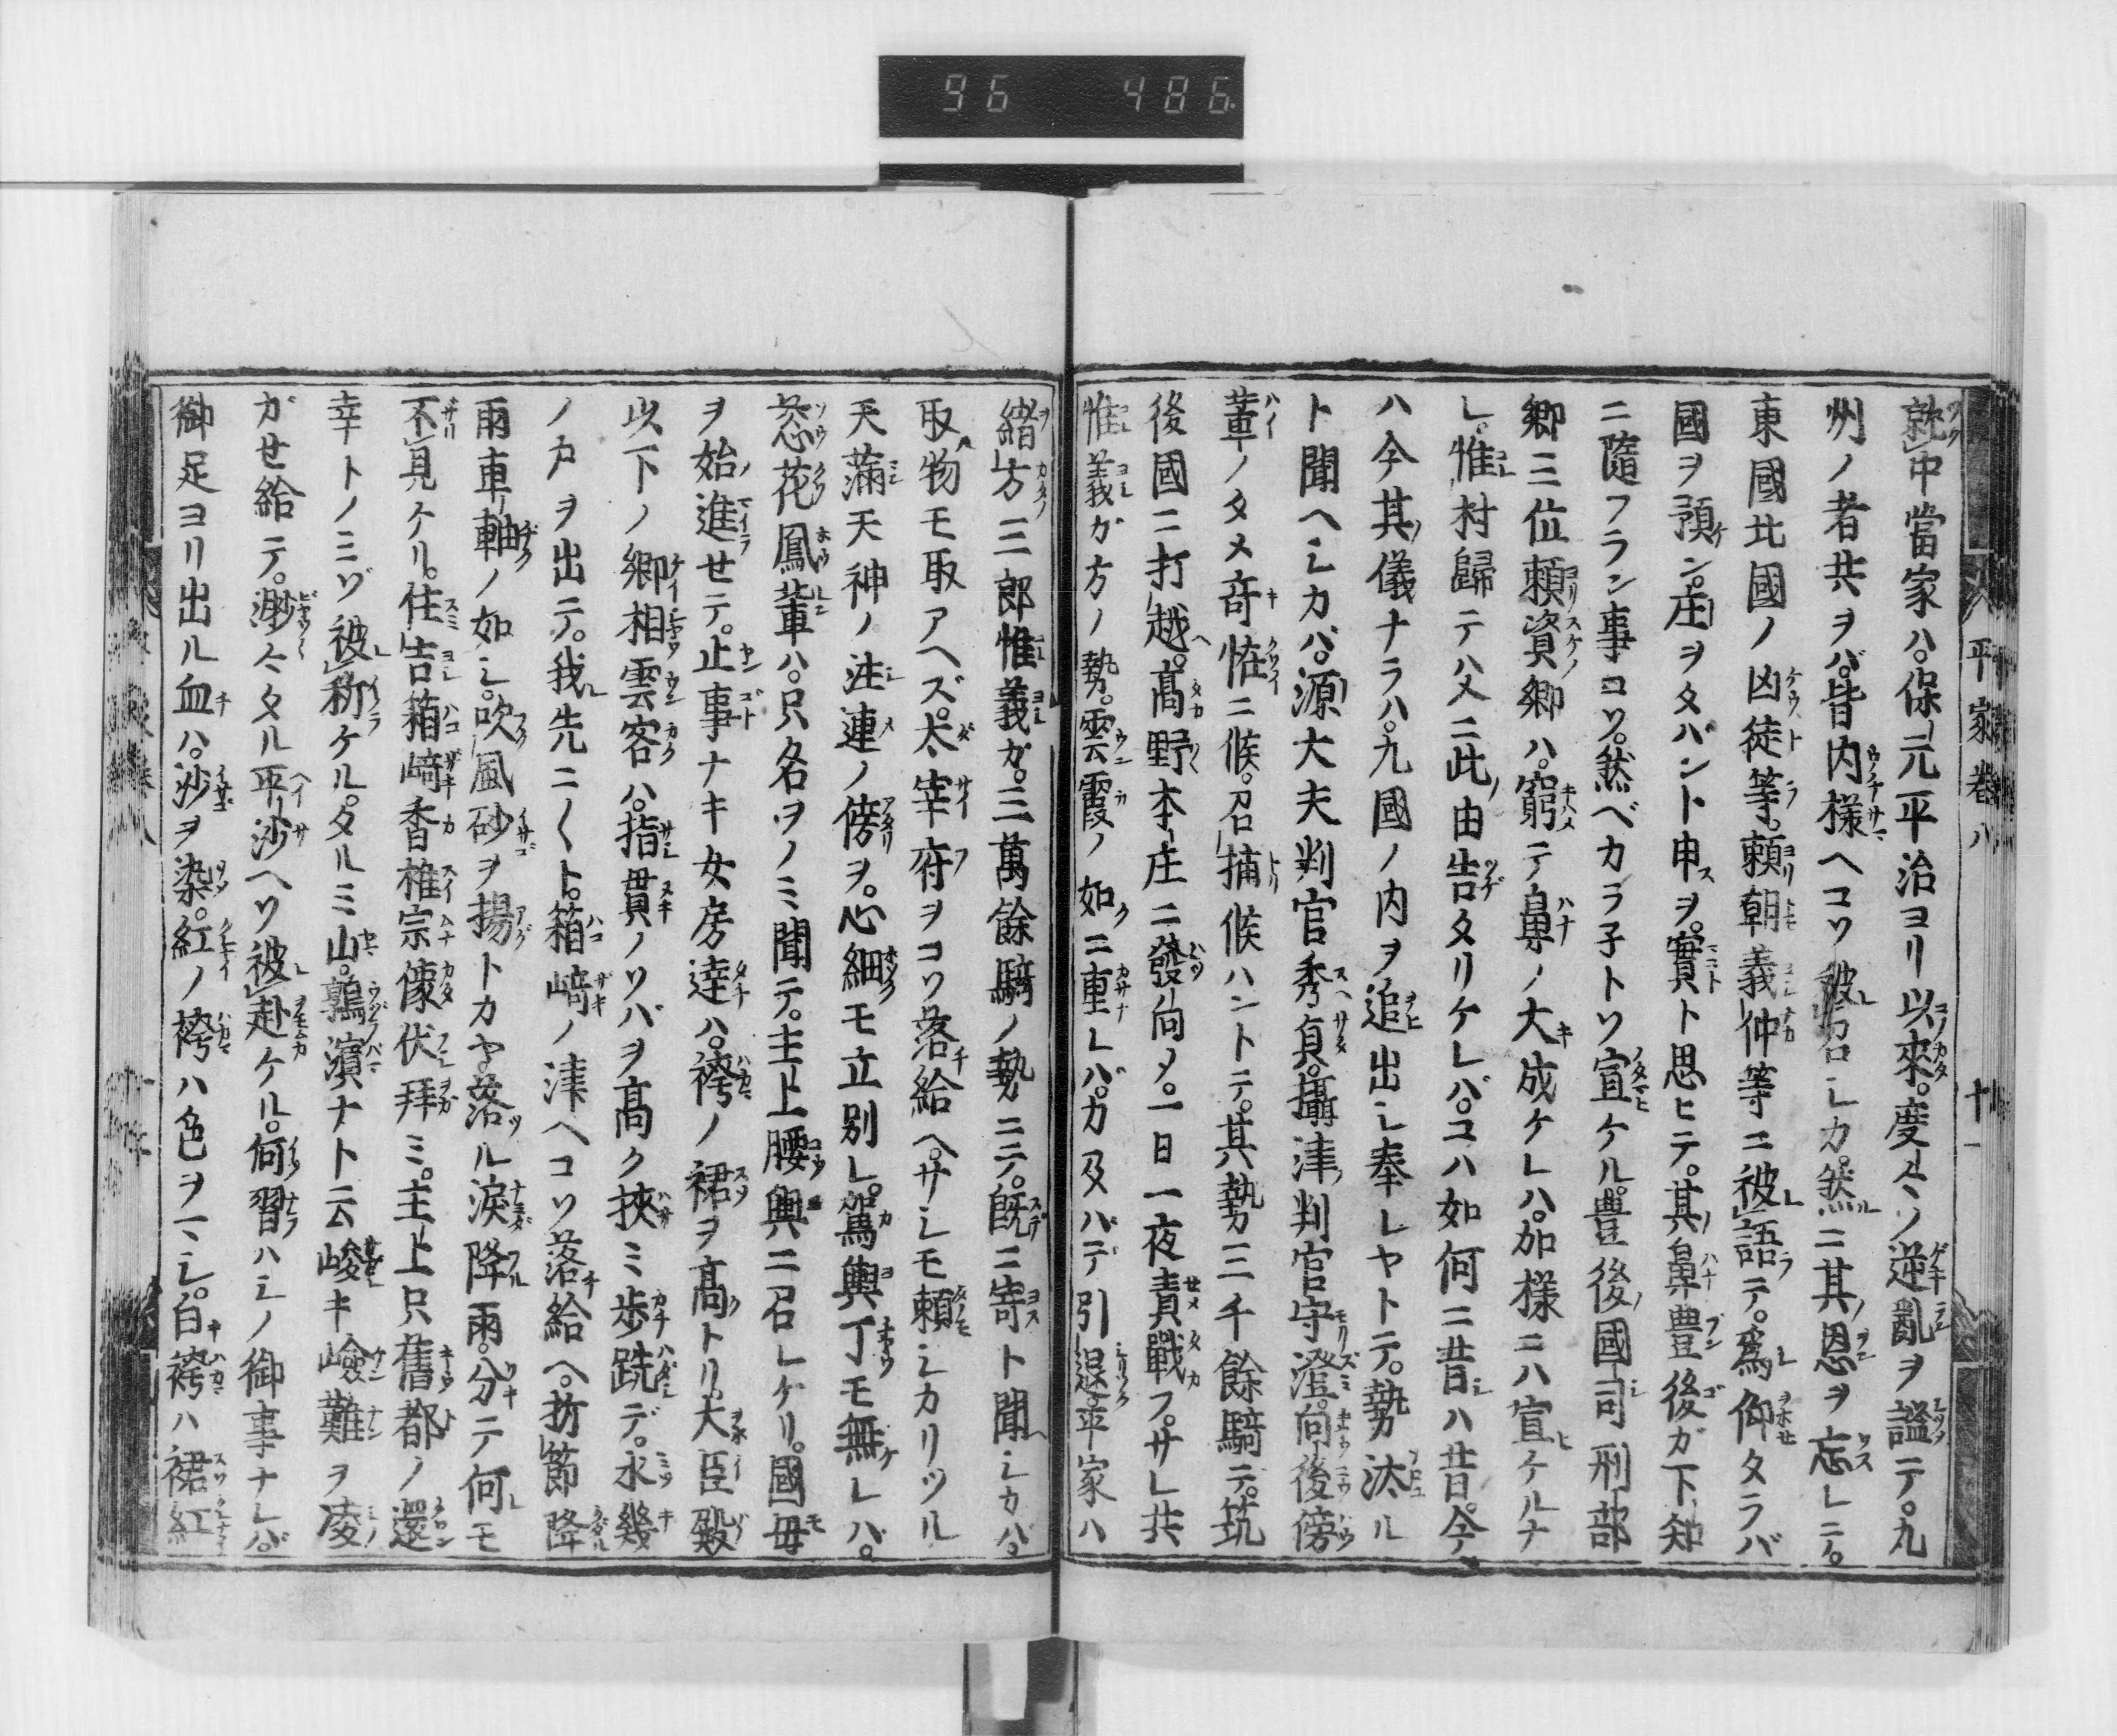 96 486
平家卷八 十一
就中當家ハ。保元平治ヨリ以來。度々ノ逆亂ヲ謐テ。九
州ノ者共ヲバ。皆内樣ヘコソ被召シカ。然ニ其恩ヲ忘レニ。
東國北國ノ凶徒等。頼朝義仲等ニ被語テ。爲仰タラバ
國ヲ預ン。庄ヲタバント申ヲ。實ト思ヒテ。其鼻豊後ガ下知
ニ隨フラン事コソ。然ベカラ子トソ宣ケル。豊後國司刑部
卿三位頼資卿ハ。窮テ鼻ノ大成ケレハ。加樣ニハ宣ケルナ
レ。惟村歸テハ父ニ此由告タリケレバ。コハ如何ニ昔ハ昔。今
ハ今其儀ナラハ。九國ノ内ヲ追出シ奉レヤトテ。勢汰ル
ト聞ヘシカバ。源大夫判官秀貞。攝津判官守澄。向後傍
輩ノタメ奇怪ニ候。召捕候ハントテ。其勢三千餘騎テ。筑
後國ニ打越。髙野本庄ニ發向メ。一日一夜責戰フ。サレ共
惟義ガ方ノ勢。雲霞ノ如ニ重レバ。力及バデ引退。平家ハ
緒方三郎惟義ガ。三萬餘騎ノ勢ニテ。既ニ寄ト聞シカバ。
取物モ取アヘズ。太宰府ヲコソ落給ヘ。サシモ頼シカリツル
天滿天神ノ注連ノ傍ヲ。心細モ立別レ。駕輿丁モ無レバ。
葱花鳳輦ハ。只名ヲノミ聞テ。主上腰輿ニ召レケリ。國母
ヲ始進せテ。止事ナキ女房達ハ。袴ノ裾ヲ髙トリ。大臣殿
以下ノ卿相雲客ハ。指貫ノソバヲ髙ク挾ミ歩跣デ。水幾
ノ戸ヲ出テ。我先ニ〱ト。箱﨑ノ津ヘコソ落給ヘ。折節降
雨車軸ノ如シ。吹風砂ヲ揚トカヤ。落ル涙降雨。分テ何モ
不見ケル。住吉箱﨑香椎宗像伏拜ミ。主上只舊都ノ還
幸トノミゾ被祈ケル。タルミ山。鶉濵ナト云峻キ嶮難ヲ凌
ガせ給テ。渺々タル平沙ヘソ被赴ケル。何習ハシノ御事ナレバ。
御足ヨリ出ル血ハ。沙ヲ染。紅ノ袴ハ色ヲマシ。白袴ハ裾紅